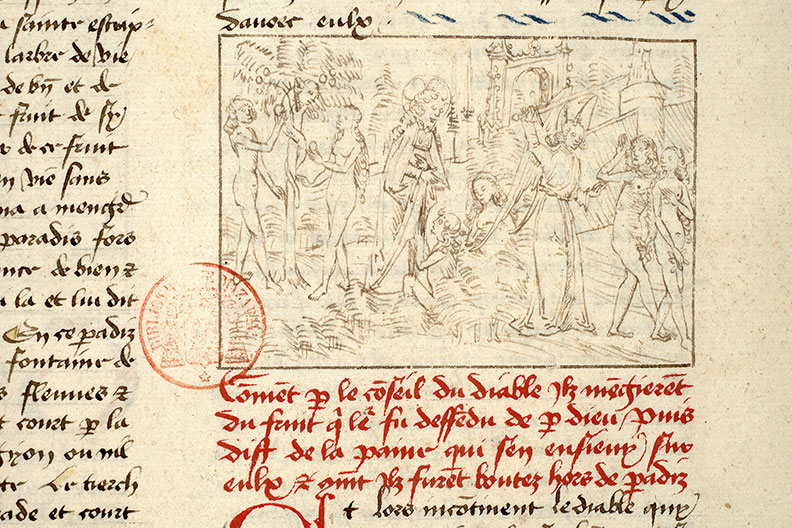 a sainte escrip-
larbre de vie
de bn et de
fruit de sy
de ce fruit
vie sans
a menger
paradis fors
ence de bien et
la et lui dit
En ce padiz
fontaine de
fleuues et
court p la
gyon ou nil
Le tierch
ade et court
dauoec eulx
Coment p le coseil du diable Ilz mengierent
du fruit q ler fu deffendu de p dieu, puis
dist de la paine qui sen ensieuy sur
eulx, et coment Ilz furent boutez hors de padiz
t lors incotinent le diable